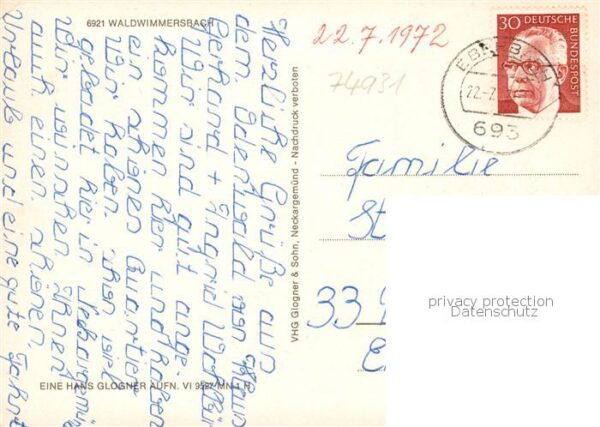 6921 WALDWIMMERSBACH
22.7.1972
74931
30 DEUTSCHE
BUNDESPOST
EBERBACH
22.-7.
693
Herzliche Grüße aus
dem Odenwald von
Gerhard + Ingrid
Wir sind gut ange-
kommen hier und haben
ein schönes Quartier.
Wir haben schon viel
gebadet hier in Neckargemü
Wir wünschen Ihnen
auch einen schönen
Urlaub und eine gute Fahrt
VHG Glogner & Sohn, Neckargemünd - Nachdruck verboten
EINE HANS GLOGNER AUFN. VI 9587 MN 1 R
Familie
St
33
privacy protection
Datenschutz